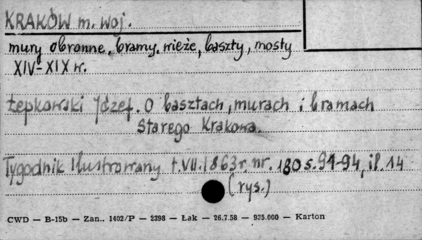 KRAKÓW m. woj.
mury obronne, bramy, wieże, baszty, mosty
XIV-XIX w.
Łepkowski Józef. O basztach, murach i bramach
Starego Krakowa.
Tygodnik Ilustrowany t.VII.1863r. nr. 180 s.94-94, il. 14
(rys.)
CWD — B-15b — Zan.. 1402/P — 2398 — Łak — 26.7.58 — 925.000 — Karton